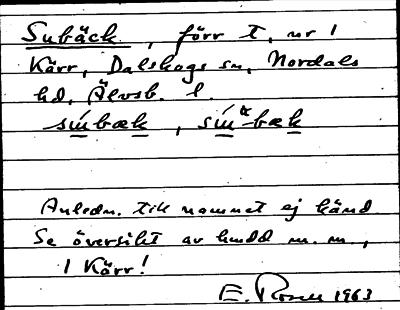 Subäck, förr t, nr 1
Kärr, Dalskogs sn, Nordals
hd, Älvsb. l.
súbæk, sú`bæk
Anledn. till namnet ej känd
Se översikt av hmdd m.m.,
1 Kärr!
E. Rosen 1963